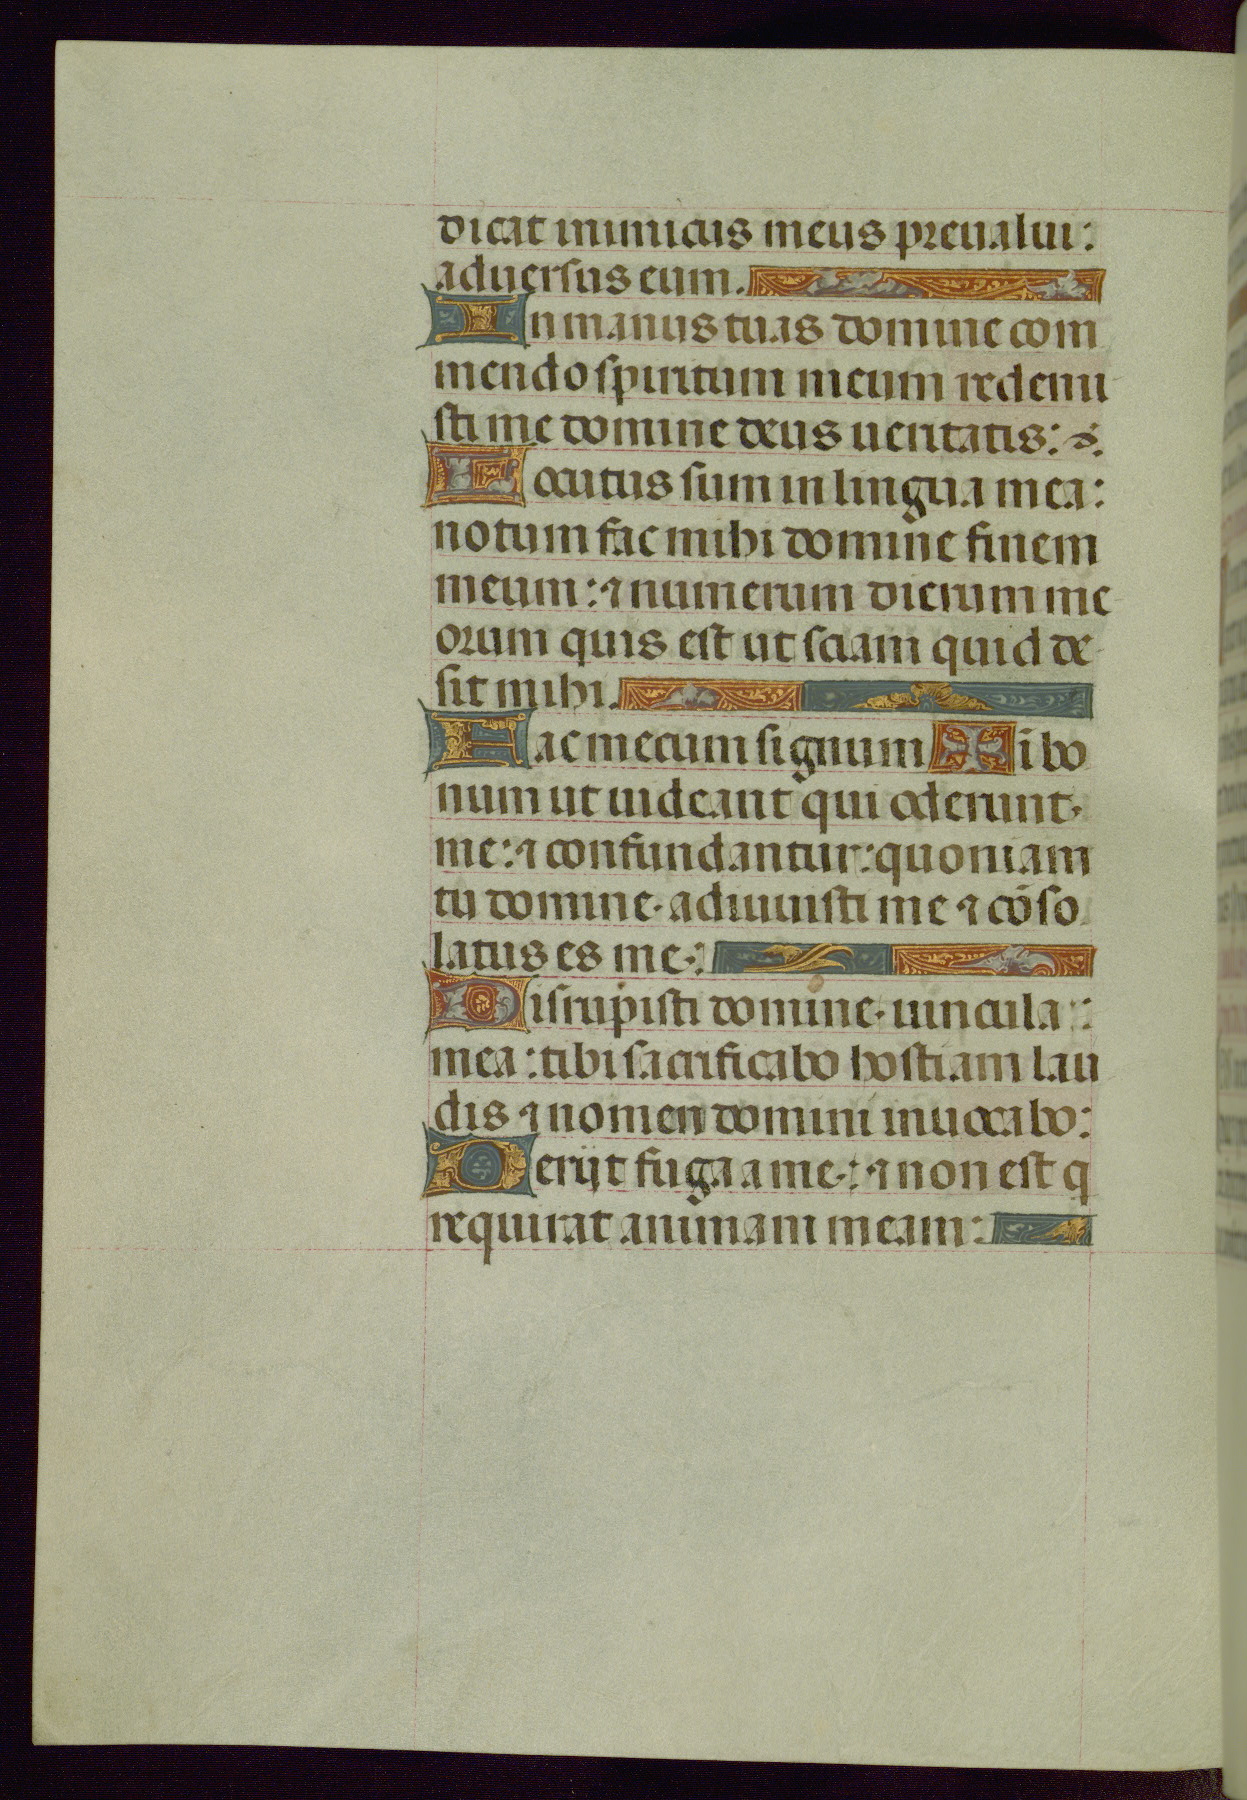 dicat inimicus meus preualui:
aduersus eum.
In manus tuas domine com
mendo spiritum meum redemi
sti me domine deus ueritatis:
Locutus sum in lingua mea:
notum fac mihi domine finem
meum: ⁊ numerum dierum me
orum quis est ut sciam quid de
sit mihi.
Fac mecum signum in bo
num ut uideant qui oderunt
me: ⁊ confundantur: quoniam
tu domine adiuuisti me ⁊ cōso
latus es me:
Disrupisti domine uincula
mea: tibi sacrificabo hostiam lau
dis ⁊ nomen domini inuocabo:
Perijt fuga a me: ⁊ non est q
requirat animam meam: